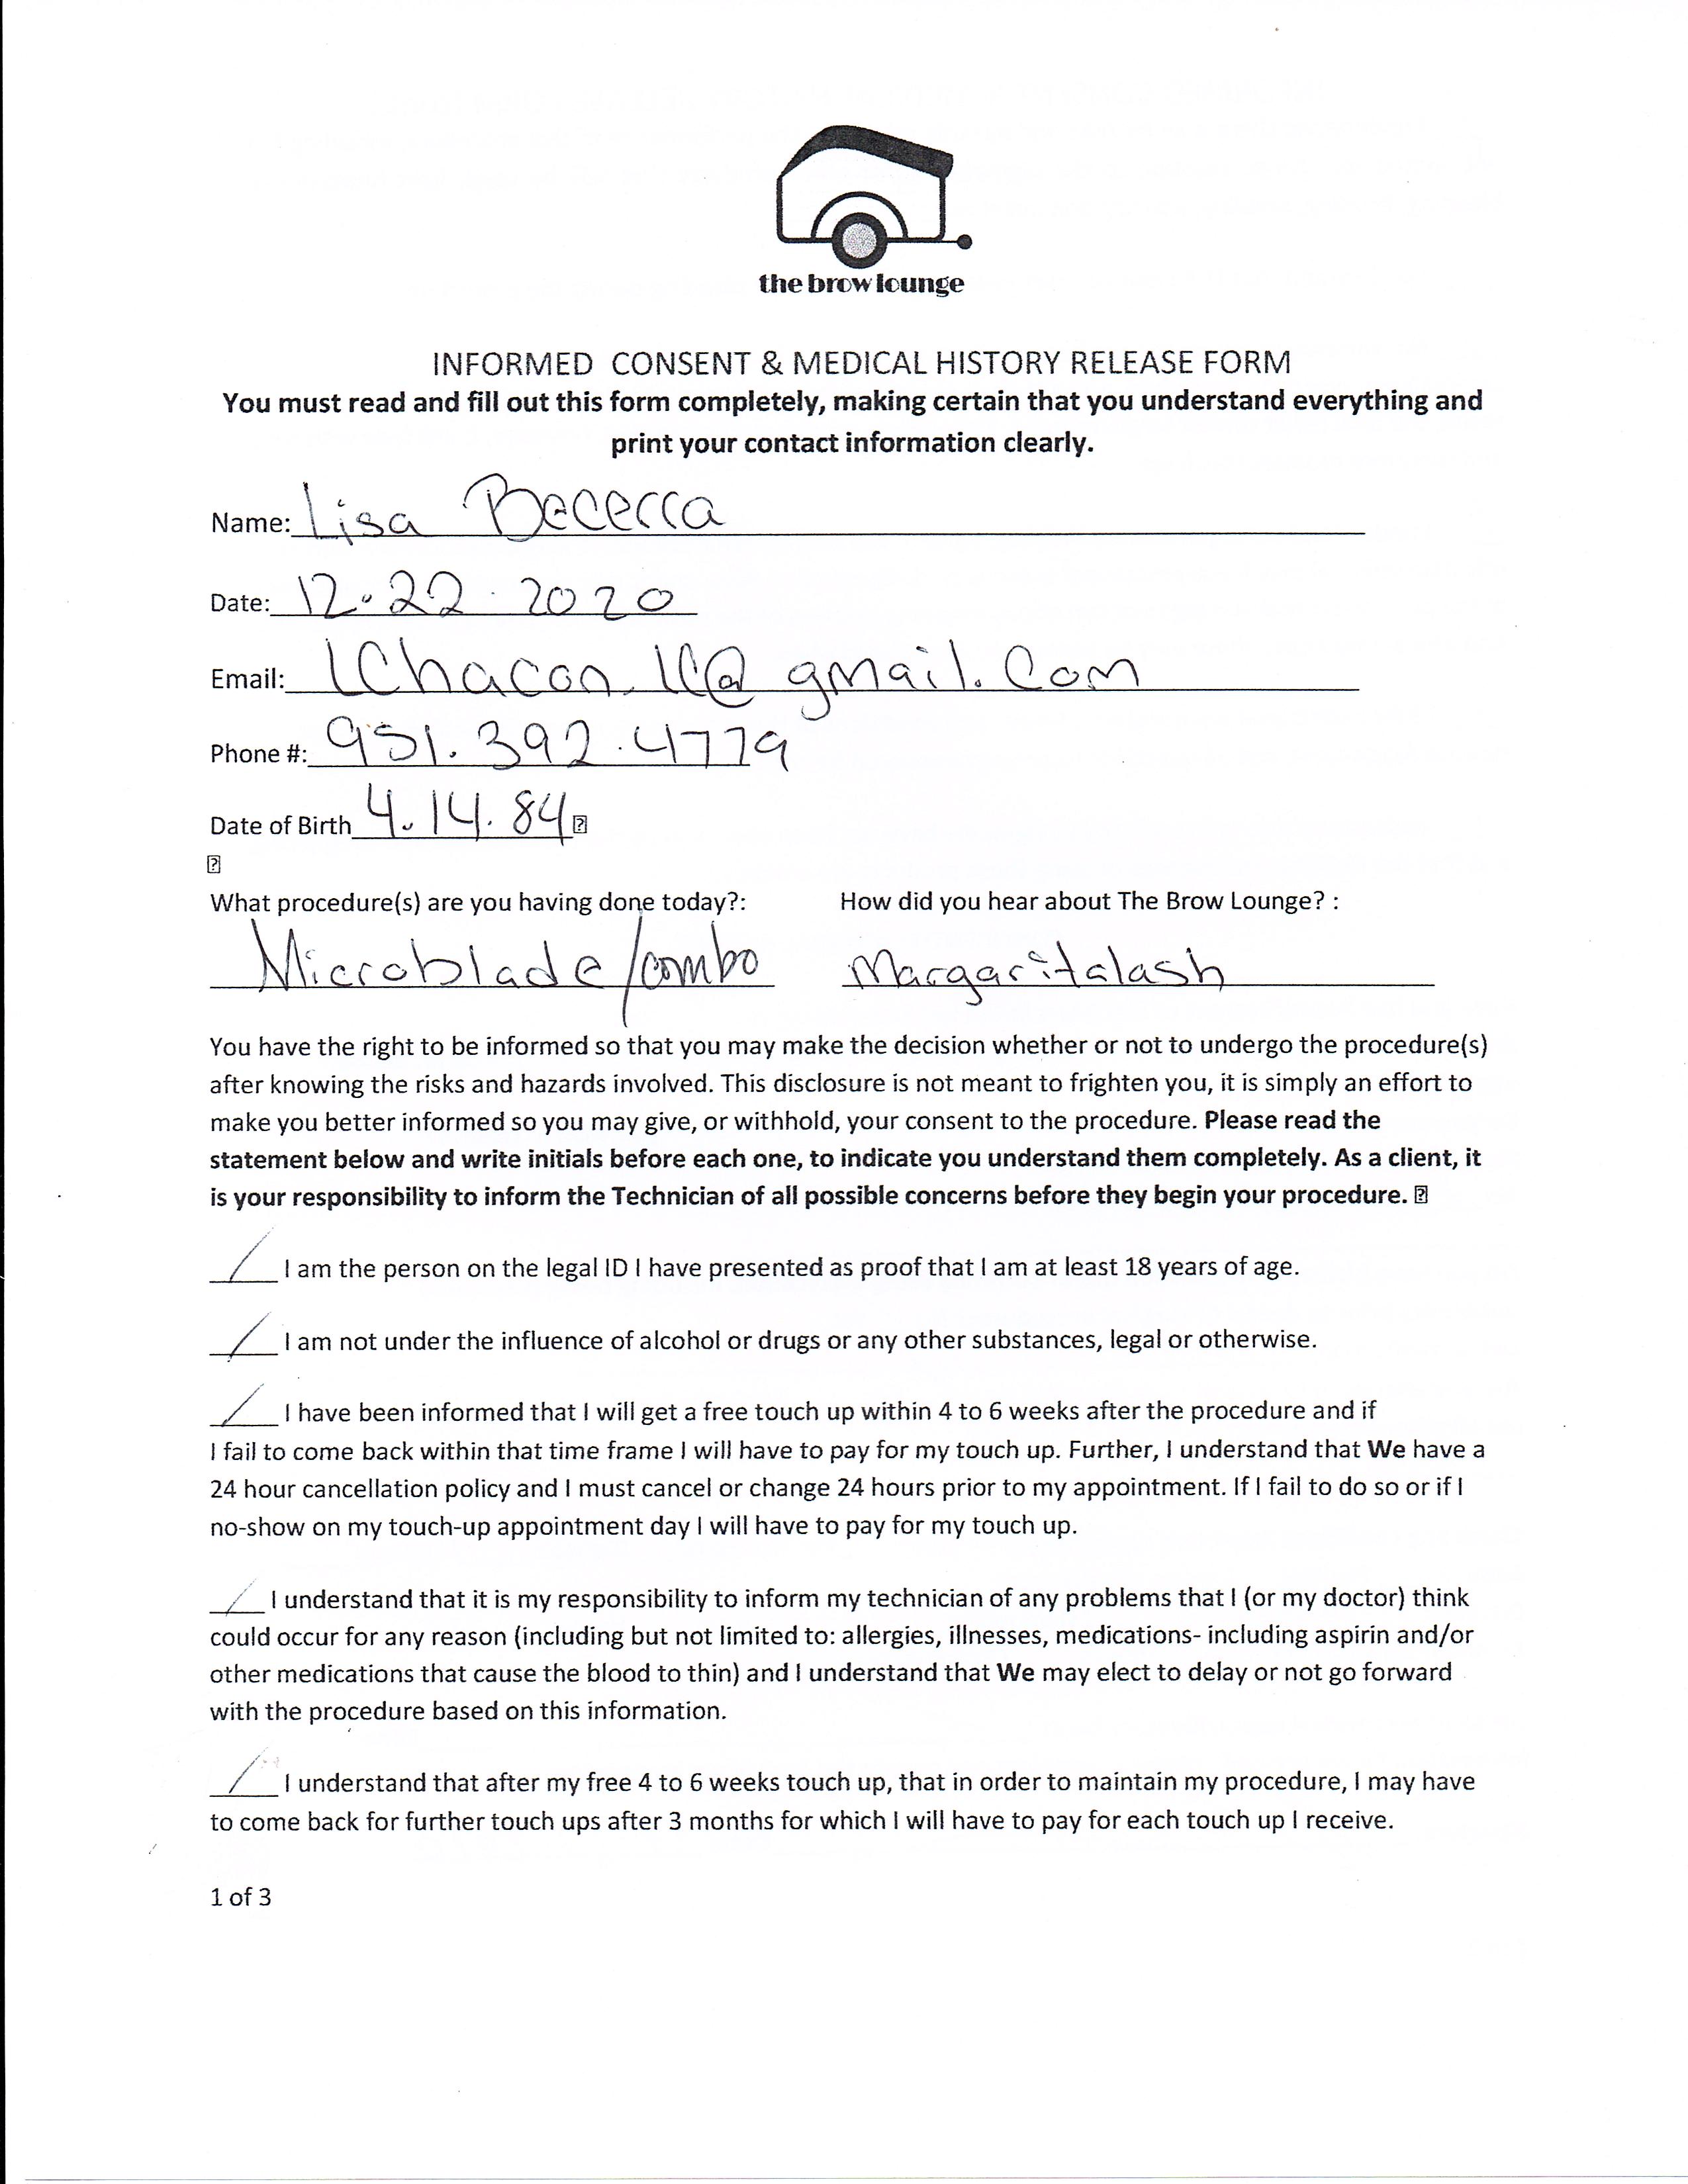 the brow lounge
INFORMED CONSENT & MEDICAL HISTORY RELEASE FORM
You must read and fill out this form completely, making certain that you understand everything and
print your contact information clearly.
Name: Lisa Becerra
Date: 12.22.2020
Email: lChacon.lc@gmail.Com
Phone #: 951.392.4779
Date of Birth 4.14.84
What procedure(s) are you having done today?: How did you hear about The Brow Lounge? :
Microblade/combo Margaritalash
You have the right to be informed so that you may make the decision whether or not to undergo the procedure(s)
after knowing the risks and hazards involved. This disclosure is not meant to frighten you, it is simply an effort to
make you better informed so you may give, or withhold, your consent to the procedure. Please read the
statement below and write initials before each one, to indicate you understand them completely. As a client, it
is your responsibility to inform the Technician of all possible concerns before they begin your procedure.
I am the person on the legal ID I have presented as proof that I am at least 18 years of age.
I am not under the influence of alcohol or drugs or any other substances, legal or otherwise.
I have been informed that I will get a free touch up within 4 to 6 weeks after the procedure and if
I fail to come back within that time frame I will have to pay for my touch up. Further, I understand that We have a
24 hour cancellation policy and I must cancel or change 24 hours prior to my appointment. If I fail to do so or if I
no-show on my touch-up appointment day I will have to pay for my touch up.
I understand that it is my responsibility to inform my technician of any problems that I (or my doctor) think
could occur for any reason (including but not limited to: allergies, illnesses, medications- including aspirin and/or
other medications that cause the blood to thin) and I understand that We may elect to delay or not go forward
with the procedure based on this information.
I understand that after my free 4 to 6 weeks touch up, that in order to maintain my procedure, I may have
to come back for further touch ups after 3 months for which I will have to pay for each touch up I receive.
1 of 3